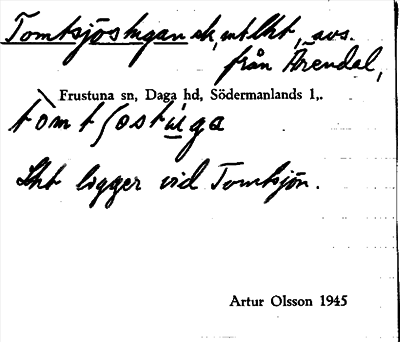 Tomtsjöstugan ek, utlht, avs.
från Ärendal,
Frustuna sn, Daga hd, Södermanlands l,.
tòmtʃöstu̱ga
Lht ligger vid Tomtsjön.
Artur Olsson 1945